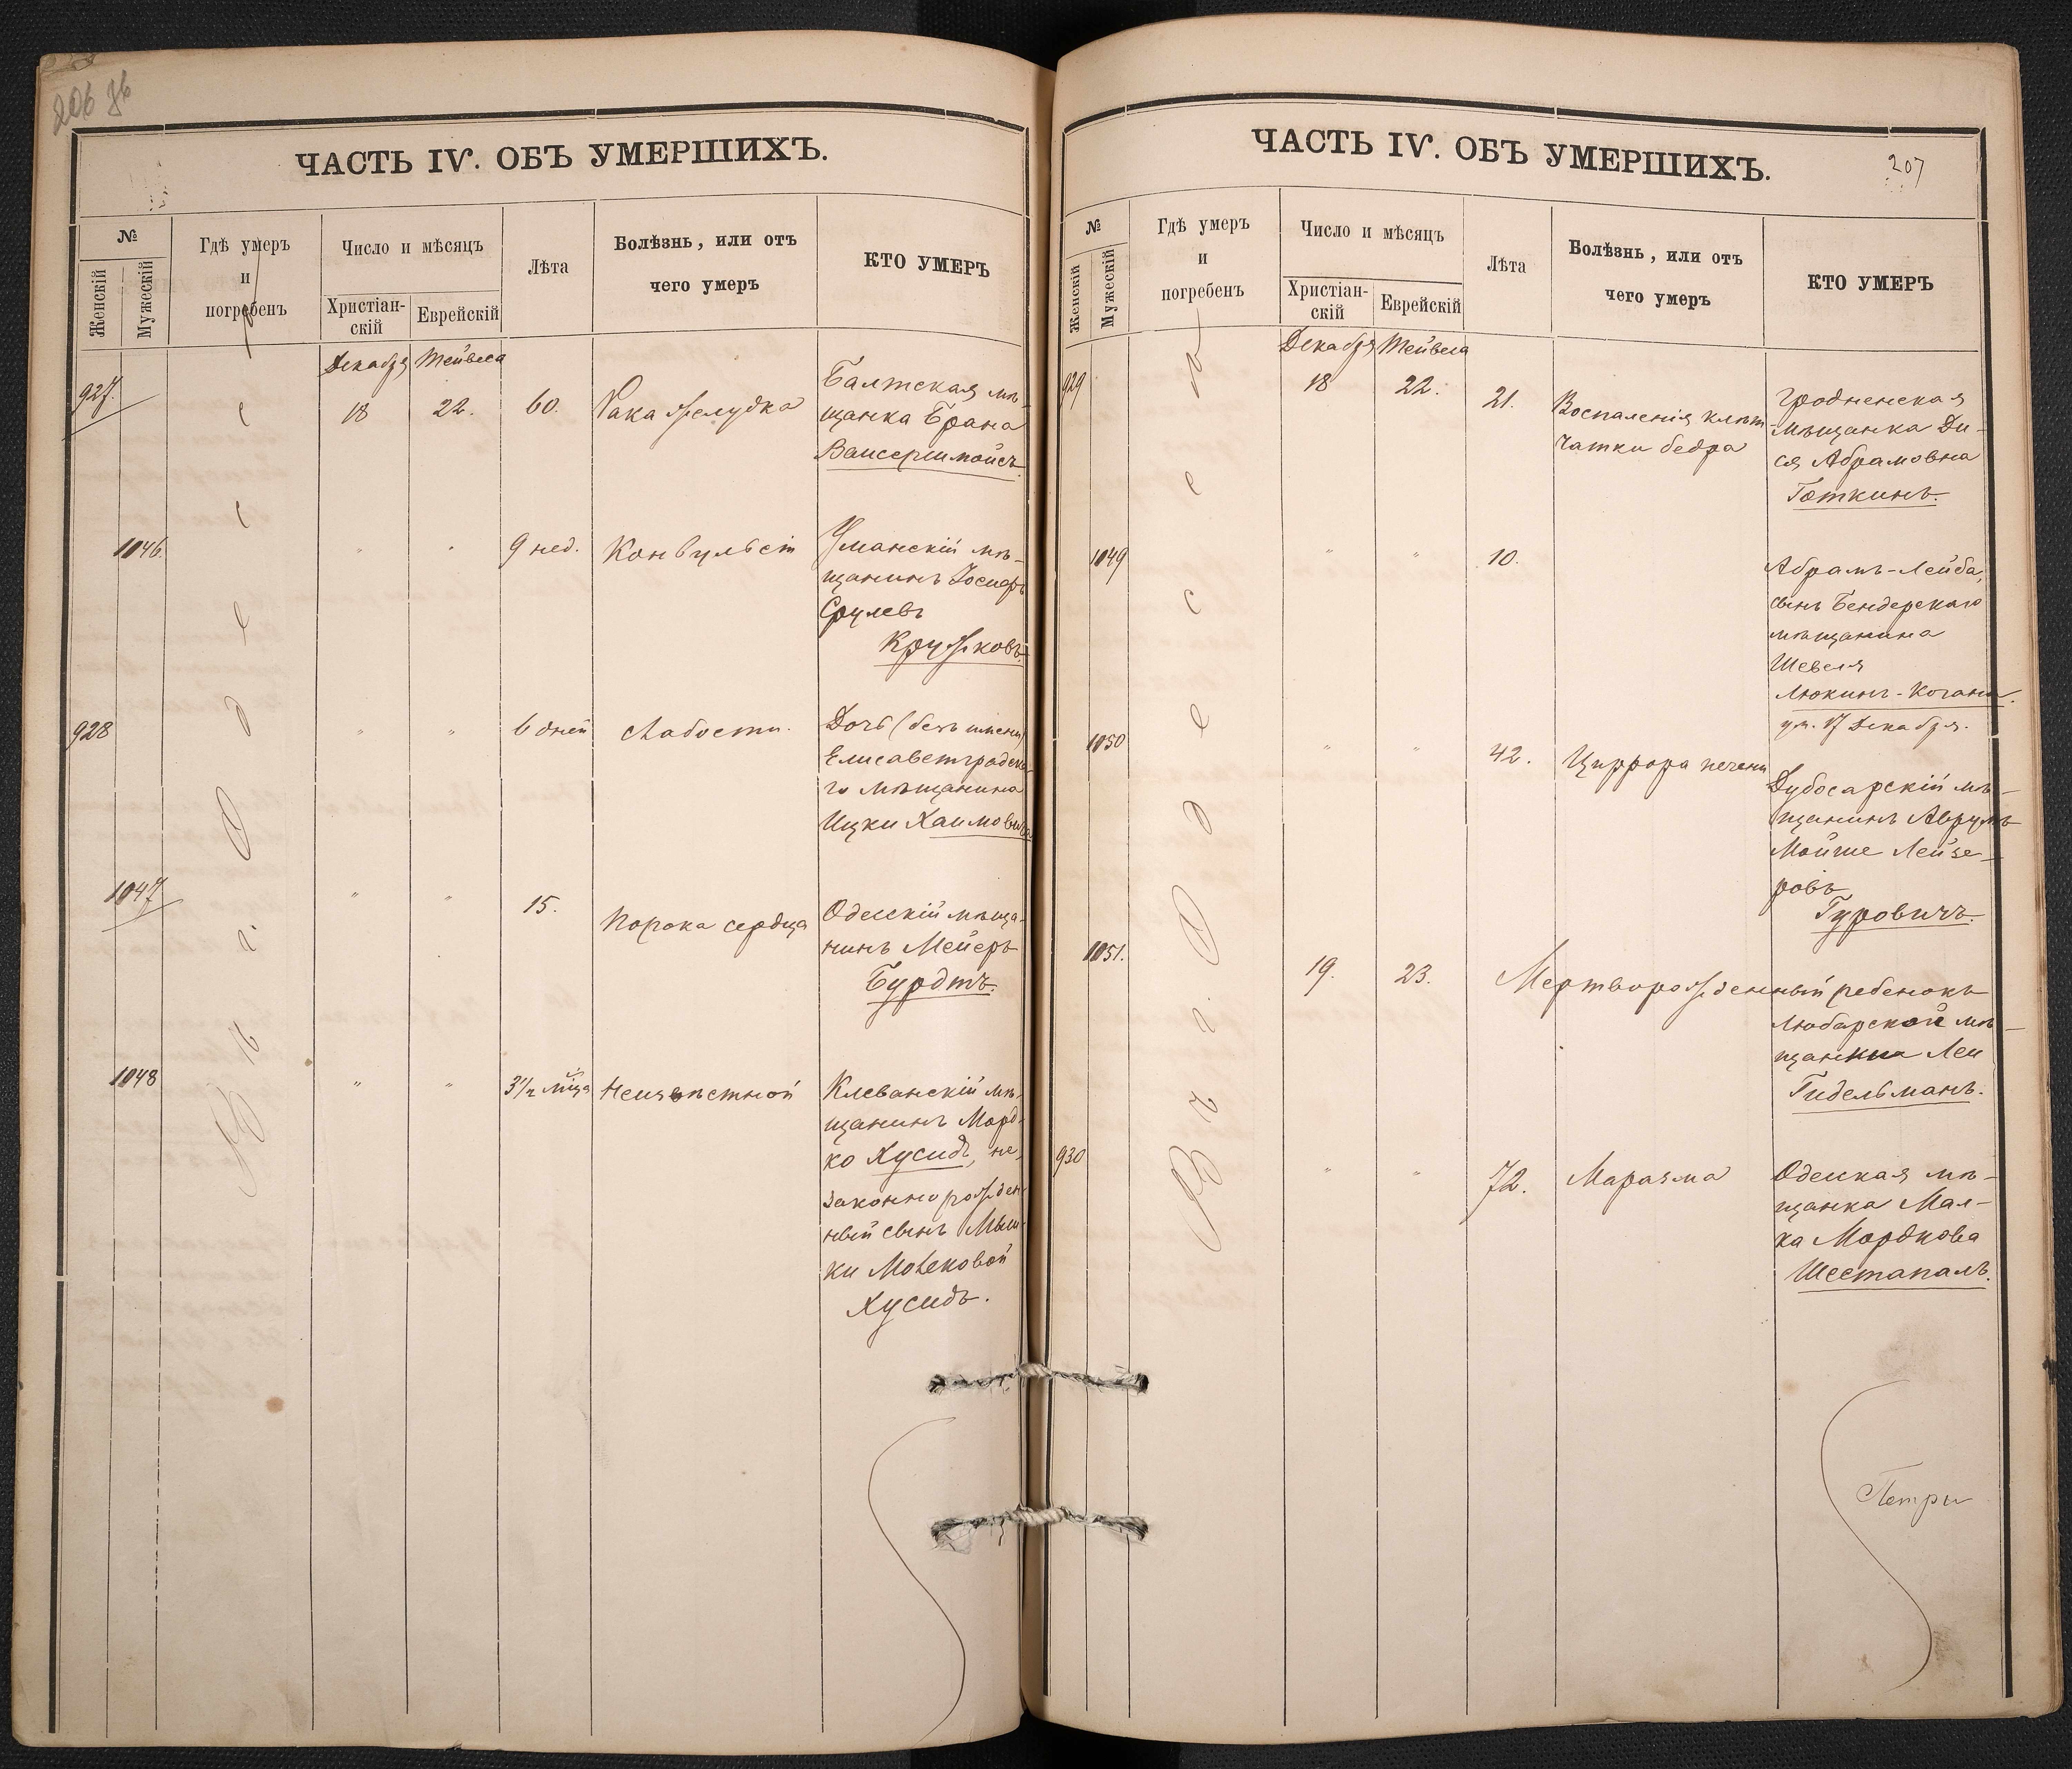 206 об
ЧАСТЬ IV. ОБЪ УМЕРШИХЪ.
№
Женскій
Мужескій
Гдѣ умеръ
и
погребенъ
Число и мѣсяцъ
Христіан-
скій
Еврейскій
Лѣта
Болѣзнь, или отъ
чего умеръ
КТО УМЕРЪ
Въ г. Одессѣ
Декабря Тейвеса
927.
18
22.
60.
Рака желудка
Балтская мѣ-
щанка Брана
Вайсерштойсъ.
1046.
"
"
9 нед.
Конвульсіи
Уманскій мѣ-
щанинъ Іосифъ
Срулевъ
Кружковъ.
928
"
"
6 дней
Слабости.
Дочь (безъ имени)
Елисаветградска-
го мѣщанина
Ицки Хаимовича
1047
"
"
15.
Порока сердца
Одесскій мѣща-
нинъ Мейеръ
Бурдтъ.
1048
"
"
3½ мѣца
Неизвѣстной
Клеванскій мѣ-
щанинъ Морд-
ко Хусидъ, не-
законнорожден-
ный сынъ
ки Мошковой
Хусидъ.
ЧАСТЬ IV. ОБЪ УМЕРШИХЪ.
207
№
Женскій
Мужескій
Гдѣ умеръ
и
погребенъ
Число и мѣсяцъ
Христіан-
скій
Еврейскій
Лѣта
Болѣзнь, или отъ
чего умеръ
КТО УМЕРЪ
Въ г. Одессѣ
Декабря Тейвеса
929
18
22.
21.
Воспаленія клѣт-
чатки бедра
Гродненская
мѣщанка Ди-
ся Абрамовна
Готкинъ.
1049
"
"
10.
Абрамъ-Лейба,
сынъ Бендерскаго
мѣщанина
Шевеля
Люкинъ-Коганъ.
ум. 17 Декабря.
1050
"
"
42.
Циррора печени
Дубосарскій мѣ-
щанинъ Аврумъ
Мойше Лейзе-
ровъ
Гуровичъ.
1051.
19.
23.
Мертворожденный ребенокъ
Любарской мѣ-
щанки Леи
Гидельманъ.
930
"
"
72.
Маразма
Одесская мѣ-
щанка Мал-
ка Мордкова
Шестапалъ.